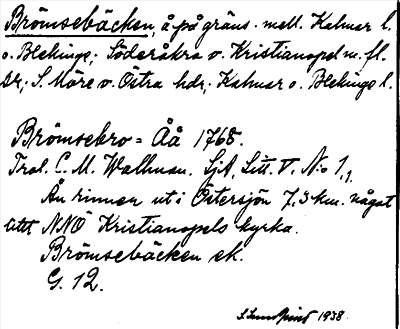 Brömsebäcken, å på gräns. mell. Kalmar l.
o. Blekinge; Söderåkra o. Kristianopel m. fl.
sr; S. Möre o. Östra hdr; Kalmar o. Blekinge l.
Brömsebro = Åå 1768.
Trol. C. M. Wallman. SjA, Litt. V. No 1,1
Ån rinner ut i Östersjön 7,3 km. något
litet NNÖ Kristianopels kyrka.
Brömsebäcken ek.
G. 12.
1938.